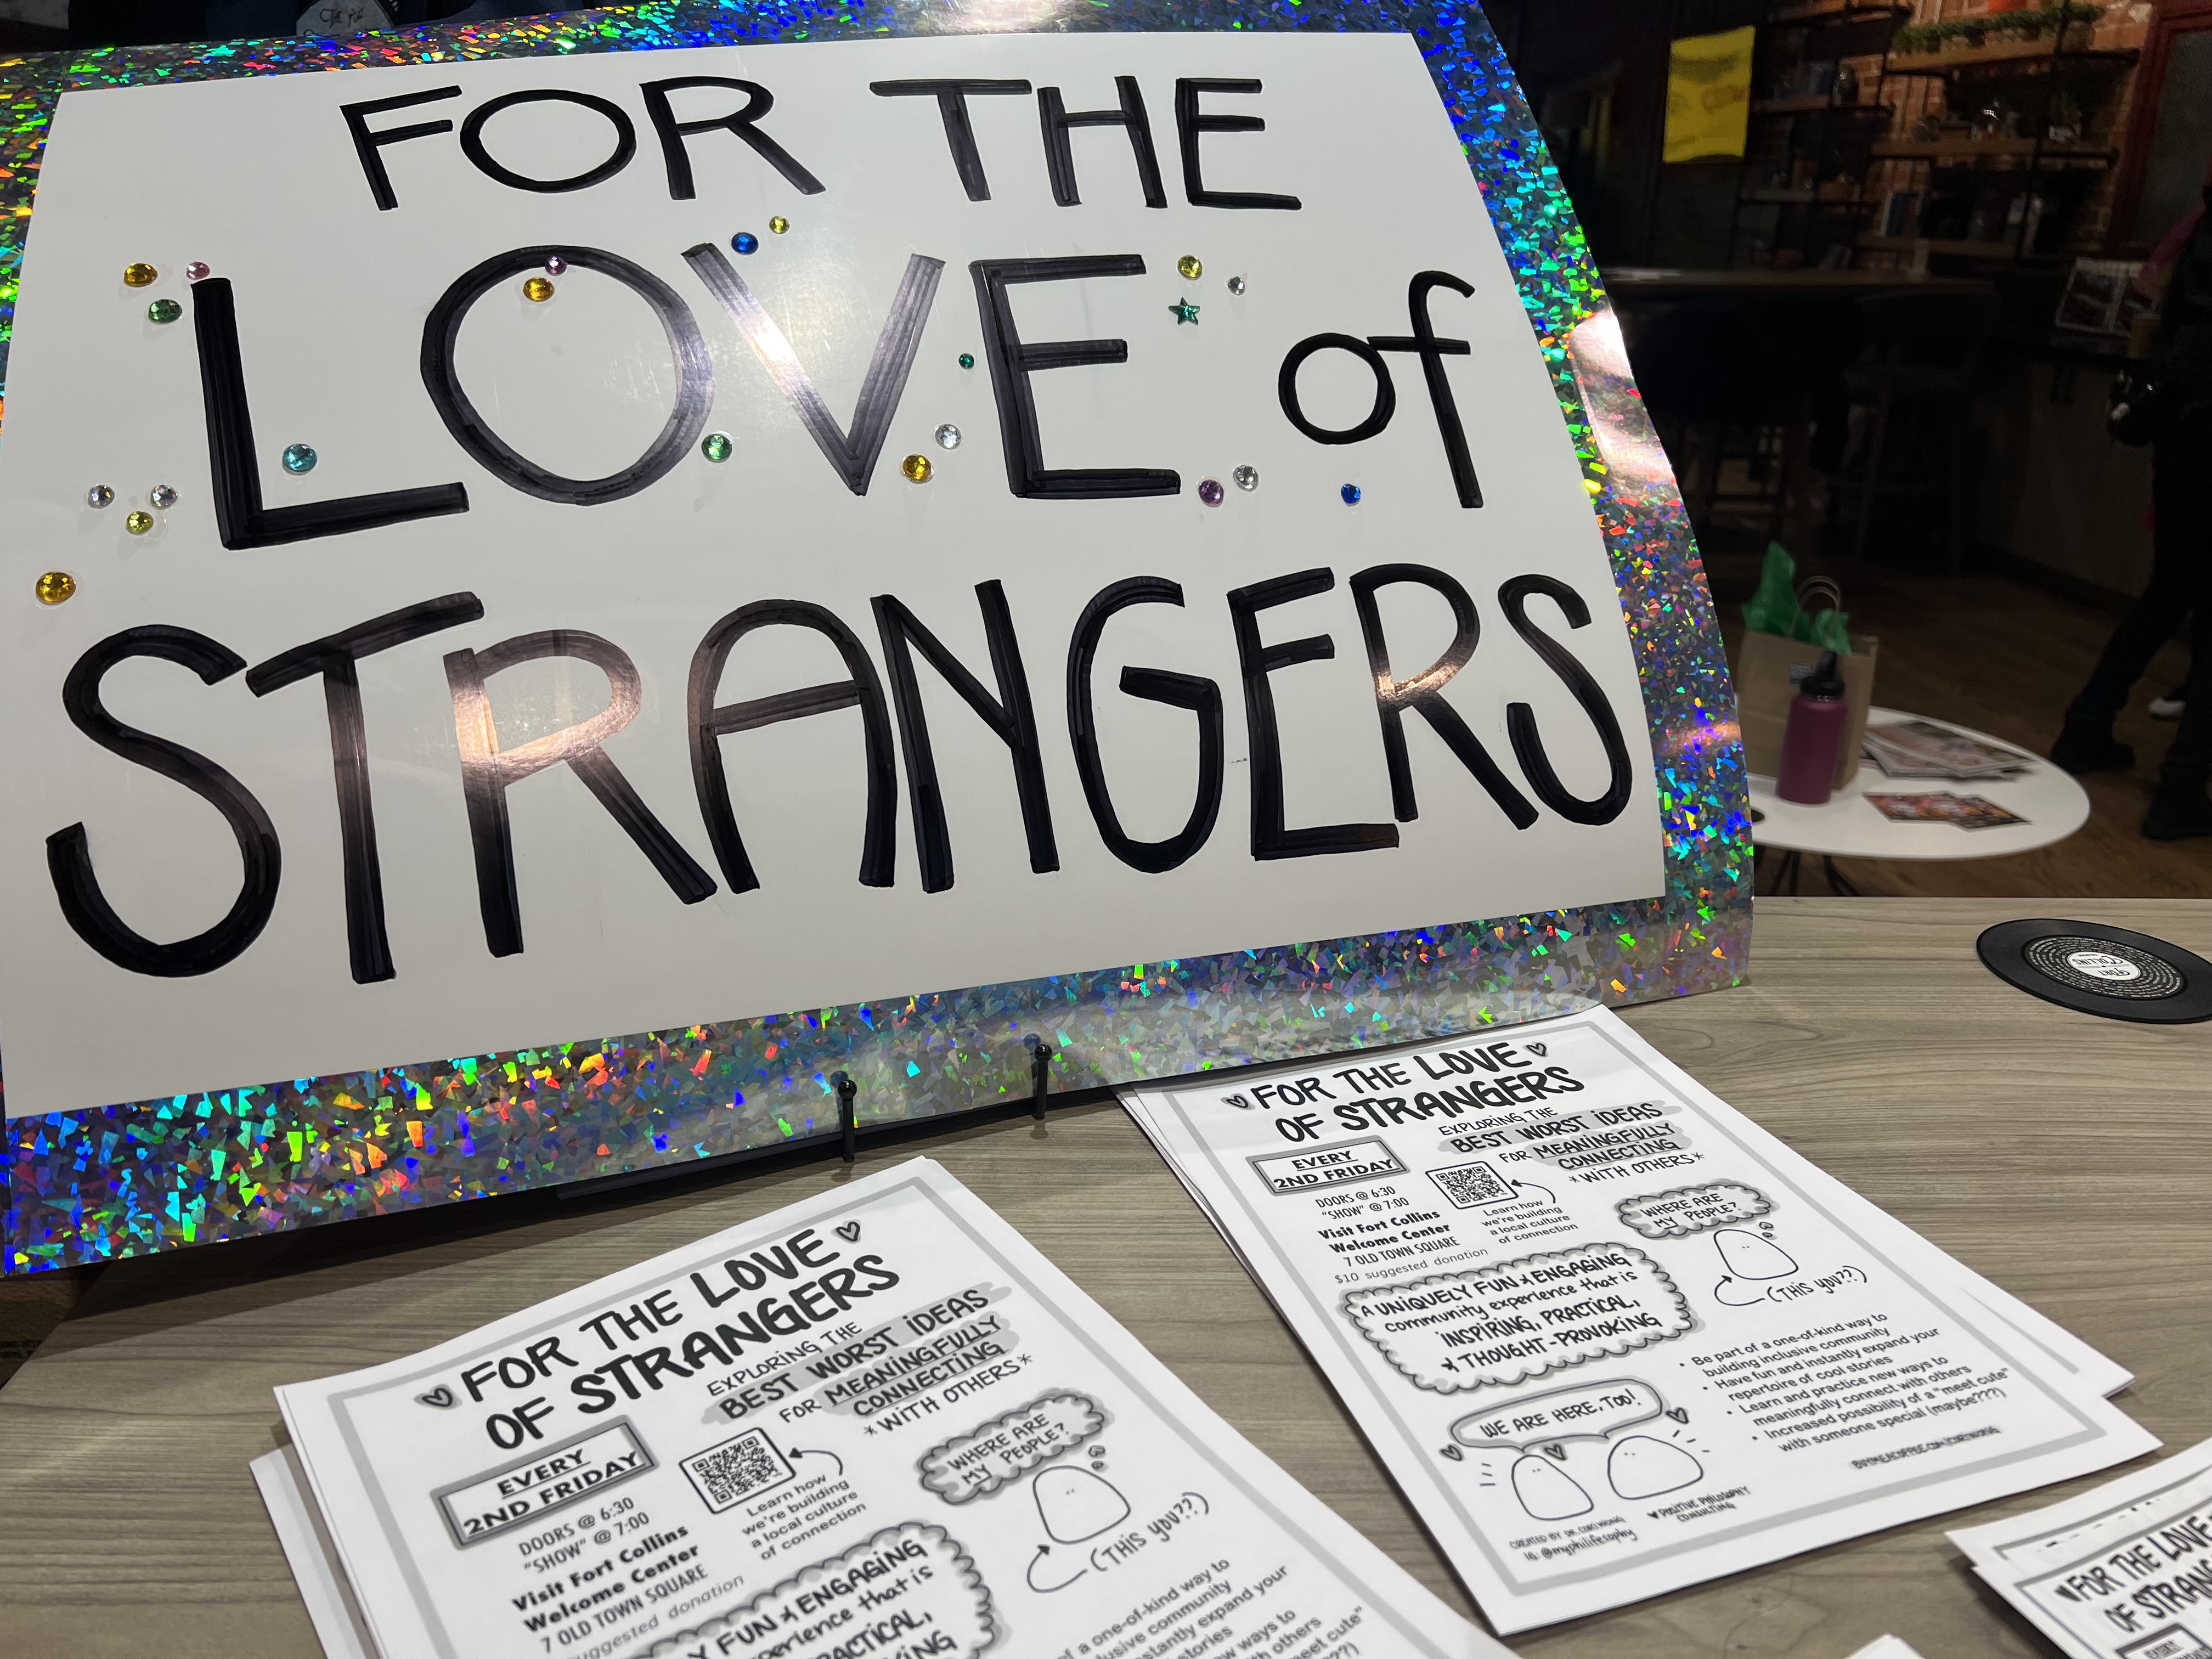 FOR THE
LOVE of
STRANGERS
FOR THE LOVE
OF STRANGERS
EXPLORING THE
BEST WORST IDEAS
FOR MEANINGFULLY
CONNECTING
*WITH OTHERS*
EVERY
2ND FRIDAY
DOORS @ 6:30
"SHOW" @ 7:00
Visit Fort Collins
Welcome Center
7 OLD TOWN SQUARE
$10 suggested donation
Learn how
we're building
a local culture
of connection
WHERE ARE
MY PEOPLE?
(THIS YOU??)
A UNIQUELY FUN & ENGAGING
community experience that is
INSPIRING, PRACTICAL,
& THOUGHT-PROVOKING
• Be part of a one-of-kind way to
building inclusive community
• Have fun and instantly expand your
repertoire of cool stories
• Learn and practice new ways to
meaningfully connect with others
• Increased possibility of a "meet cute"
with someone special (maybe???)
WE ARE HERE, TOO!
CREATED BY DR. CORI WONG
IG: @myphilifesophy
POSITIVE PHILOSOPHY
CONSULTING
BUYMEACOFFEE.COM/CORIWONG
FOR THE LOVE
OF STRANGERS
EXPLORING THE
BEST WORST IDEAS
FOR MEANINGFULLY
CONNECTING
*WITH OTHERS*
EVERY
2ND FRIDAY
DOORS @ 6:30
"SHOW" @ 7:00
Visit Fort Collins
Welcome Center
7 OLD TOWN SQUARE
suggested donation
Learn how
we're building
a local culture
of connection
WHERE ARE
MY PEOPLE?
(THIS YOU??)
FUN & ENGAGING
that is
of a one-of-kind way to
community
expand your
stories
ways to
others
meet cute"
FOR THE LOVE
OF
FORT
COLLINS